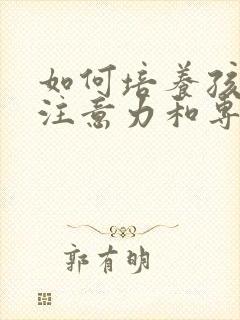 如何培养孩
注意力和专
郭有明